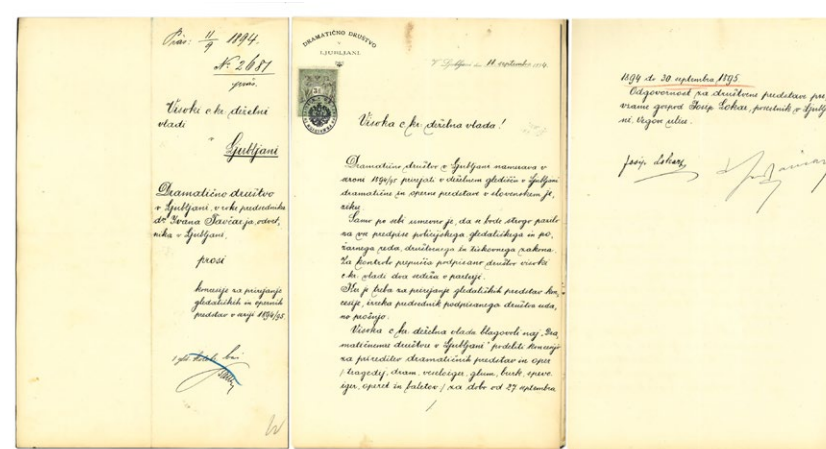 Präs: 11/9 1894.
No 2681
präs.
Visoki c. kr. deželni
vladi
v
Ljubljani
Dramatično društvo
v Ljubljani, v roke predsednika
dr. Ivana Tavčarja, odvet,
nika v Ljubljani,
prosi
koncesije za prirejanje
gledaliških in opernih
predstav v sezoni 1894/95.
1 pril.
DRAMATIČNO DRUŠTVO
V
LJUBLJANI.
V Ljubljani dne 11. septembra 1894.
Visoka c. kr. deželna vlada!
Dramatično društvo v Ljubljani namerava v
sezoni 1894/95 prirejati v deželnem gledišči v Ljubljani
dramatične in operne predstave v slovenskem je,
ziku.
Samo po sebi umevno je, da se bode strogo pazilo
na vse predpise policijskega, gledališkega in po,
žarnega reda, društvenega in tiskovnega zakona.
Za kontrolo prepušča podpisano društvo visoki
c. kr. vladi dva sedeža v parterji.
Ker je treba za prirejanje gledaliških predstav kon,
cesije, izreka predsednik podpisanega društva uda,
no prošnjo:
Visoka c. kr. deželna vlada blagovoli naj „Dra,
matičnemu društvu v Ljubljani" podeliti koncesijo
za prireditev dramatičnih predstav in oper
(tragedij, dram, veseloiger, glum, burk, speve,
iger, operet in baletov) za dobo od 27 septembra
1894 do 30 septembra 1895.
Odgovornost za društvene predstave pre,
vzame gospod Josip Lokar, posestnik v Ljublja
ni, Vegove ulice.
Josip Lokar